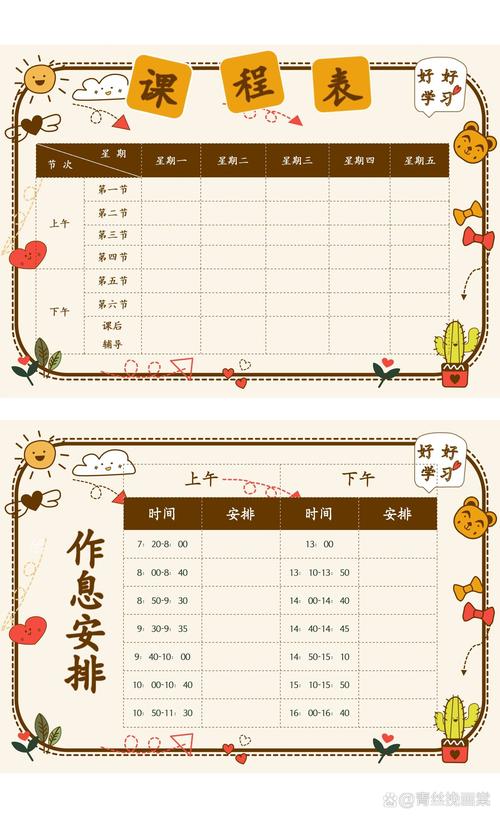 课程表
好好
学习
星期
节次
星期一 星期二 星期三 星期四 星期五
上午
第一节
第二节
第三节
第四节
下午
第五节
第六节
课后
辅导
好好
学习
作息安排
上午 下午
时间 安排 时间 安排
7：20-8：00 13：00
8：00-8：40 13：10-13：50
8：50-9：30 14：00-14：40
9：30-9：35 14：40-14：45
9：40-10：00 14：50-15：10
10：00-10：40 15：10-15：50
10：50-11：30 16：00-16：40
@青丝挽画棠